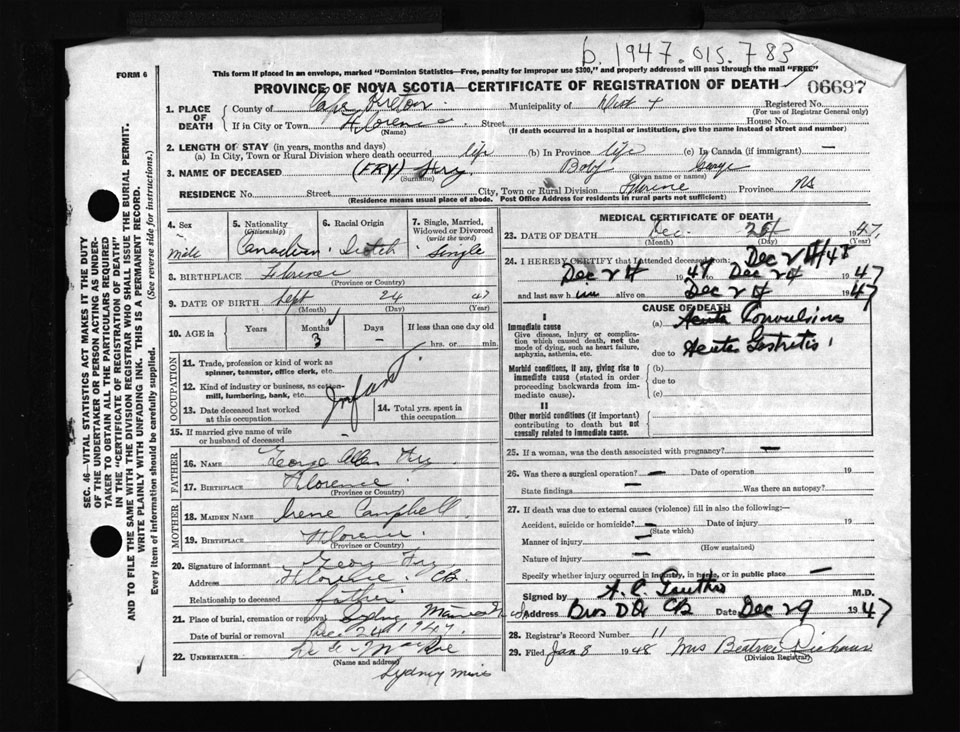 b. 1947.015.783
FORM 6
This form if placed in an envelope, marked "Dominion Statistics—Free, penalty for improper use $300," and properly addressed will pass through the mail "FREE"
PROVINCE OF NOVA SCOTIA—CERTIFICATE OF REGISTRATION OF DEATH
06697
1. PLACE OF DEATH
County of Cape Breton Municipality of Registered No.
(For use of Registrar General only)
If in City or Town Florence Street House No.
(Name) (If death occurred in a hospital or institution, give the name instead of street and number)
2. LENGTH OF STAY (in years, months and days)
(a) In City, Town or Rural Division where death occurred life (b) In Province life (c) In Canada (if immigrant) —
3. NAME OF DECEASED (FRY) Fry Boby George
(Surname) (Given name or names)
RESIDENCE No. Street City, Town or Rural Division Florence Province NS
(Residence means usual place of abode. Post Office Address for residents in rural parts not sufficient)
4. Sex
male
5. Nationality
(Citizenship)
Canadian
6. Racial Origin
Scotch
7. Single, Married, Widowed or Divorced
(write the word)
Single
8. BIRTHPLACE Florence
(Province or Country)
9. DATE OF BIRTH Sept 24 47
(Month) (Day) (Year)
10. AGE in
Years
Months
3
Days
–
If less than one day old
hrs. or min.
OCCUPATION
11. Trade, profession or kind of work as spinner, teamster, office clerk, etc.
12. Kind of industry or business, as cotton-mill, lumbering, bank, etc.
Infant
13. Date deceased last worked at this occupation
14. Total yrs. spent in this occupation
15. If married give name of wife or husband of deceased –
FATHER
16. NAME George Allen Fry
17. BIRTHPLACE Florence
(Province or Country)
MOTHER
18. MAIDEN NAME Irene Campbell
19. BIRTHPLACE Florence
(Province or Country)
20. Signature of informant George Fry
Address Florence CB
Relationship to deceased father
21. Place of burial, cremation or removal Sydney Mines
Date of burial or removal Dec 24 1947
22. UNDERTAKER
(Name and address)
Sydney Mines
MEDICAL CERTIFICATE OF DEATH
23. DATE OF DEATH Dec. 24 1947
(Month) (Day) (Year)
24. I HEREBY CERTIFY that I attended deceased from:
Dec 24 1947 to Dec 24 1947
and last saw him alive on Dec 24 1947
CAUSE OF DEATH
I
Immediate cause
Give disease, injury or complication which caused death, not the mode of dying, such as heart failure, asphyxia, asthenia, etc.
(a) Acute Convulsions
due to Acute Gastritis
Morbid conditions, if any, giving rise to immediate cause (stated in order proceeding backwards from immediate cause).
(b)
due to
(c)
II
Other morbid conditions (if important) contributing to death but not causally related to immediate cause.
25. If a woman, was the death associated with pregnancy? —
26. Was there a surgical operation? — Date of operation 19
State findings — Was there an autopsy?
27. If death was due to external causes (violence) fill in also the following:—
Accident, suicide or homicide? — Date of injury 19
(State which)
Manner of injury —
(How sustained)
Nature of injury —
Specify whether injury occurred in industry, in home, or in public place —
Signed by M.D.
Address CB Date Dec 29 1947
28. Registrar's Record Number 11
29. Filed Jan 8 1948 Mrs Beatrice
(Division Registrar)
SEC. 46—VITAL STATISTICS ACT MAKES IT THE DUTY OF THE UNDERTAKER OR PERSON ACTING AS UNDERTAKER TO OBTAIN ALL THE PARTICULARS REQUIRED IN THE "CERTIFICATE OF REGISTRATION OF DEATH"
AND TO FILE THE SAME WITH THE DIVISION REGISTRAR WHO SHALL ISSUE THE BURIAL PERMIT.
WRITE PLAINLY WITH UNFADING INK. THIS IS A PERMANENT RECORD.
Every item of information should be carefully supplied. (See reverse side for instructions.)